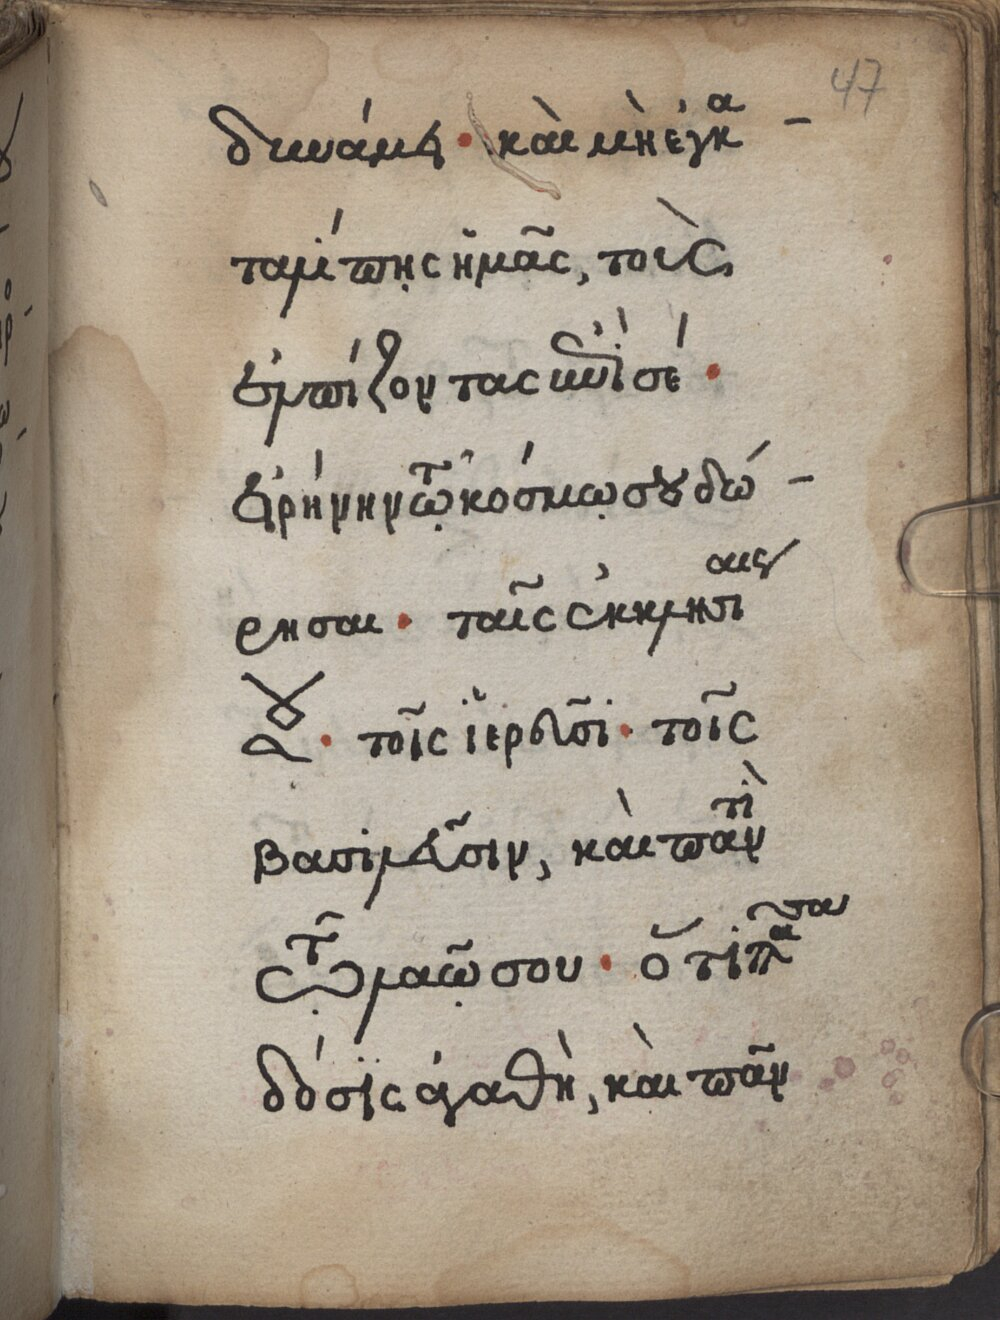 47
δυνάμει · καὶ μὴ ἐγκα
ταλίπῃς ἡμᾶς, τοὺς
ἐλπίζοντας ἐπὶ σέ ·
εἰρήνην τῷ κόσμῳ σου δώ
ρησαι · ταῖς ἐκκλησίαις
σου · τοῖς ἱερεῦσι · τοῖς
βασιλεῦσιν, καὶ παντὶ
τῷ λαῷ σου · ὅτι πᾶσα
δόσις ἀγαθὴ, καὶ πᾶν